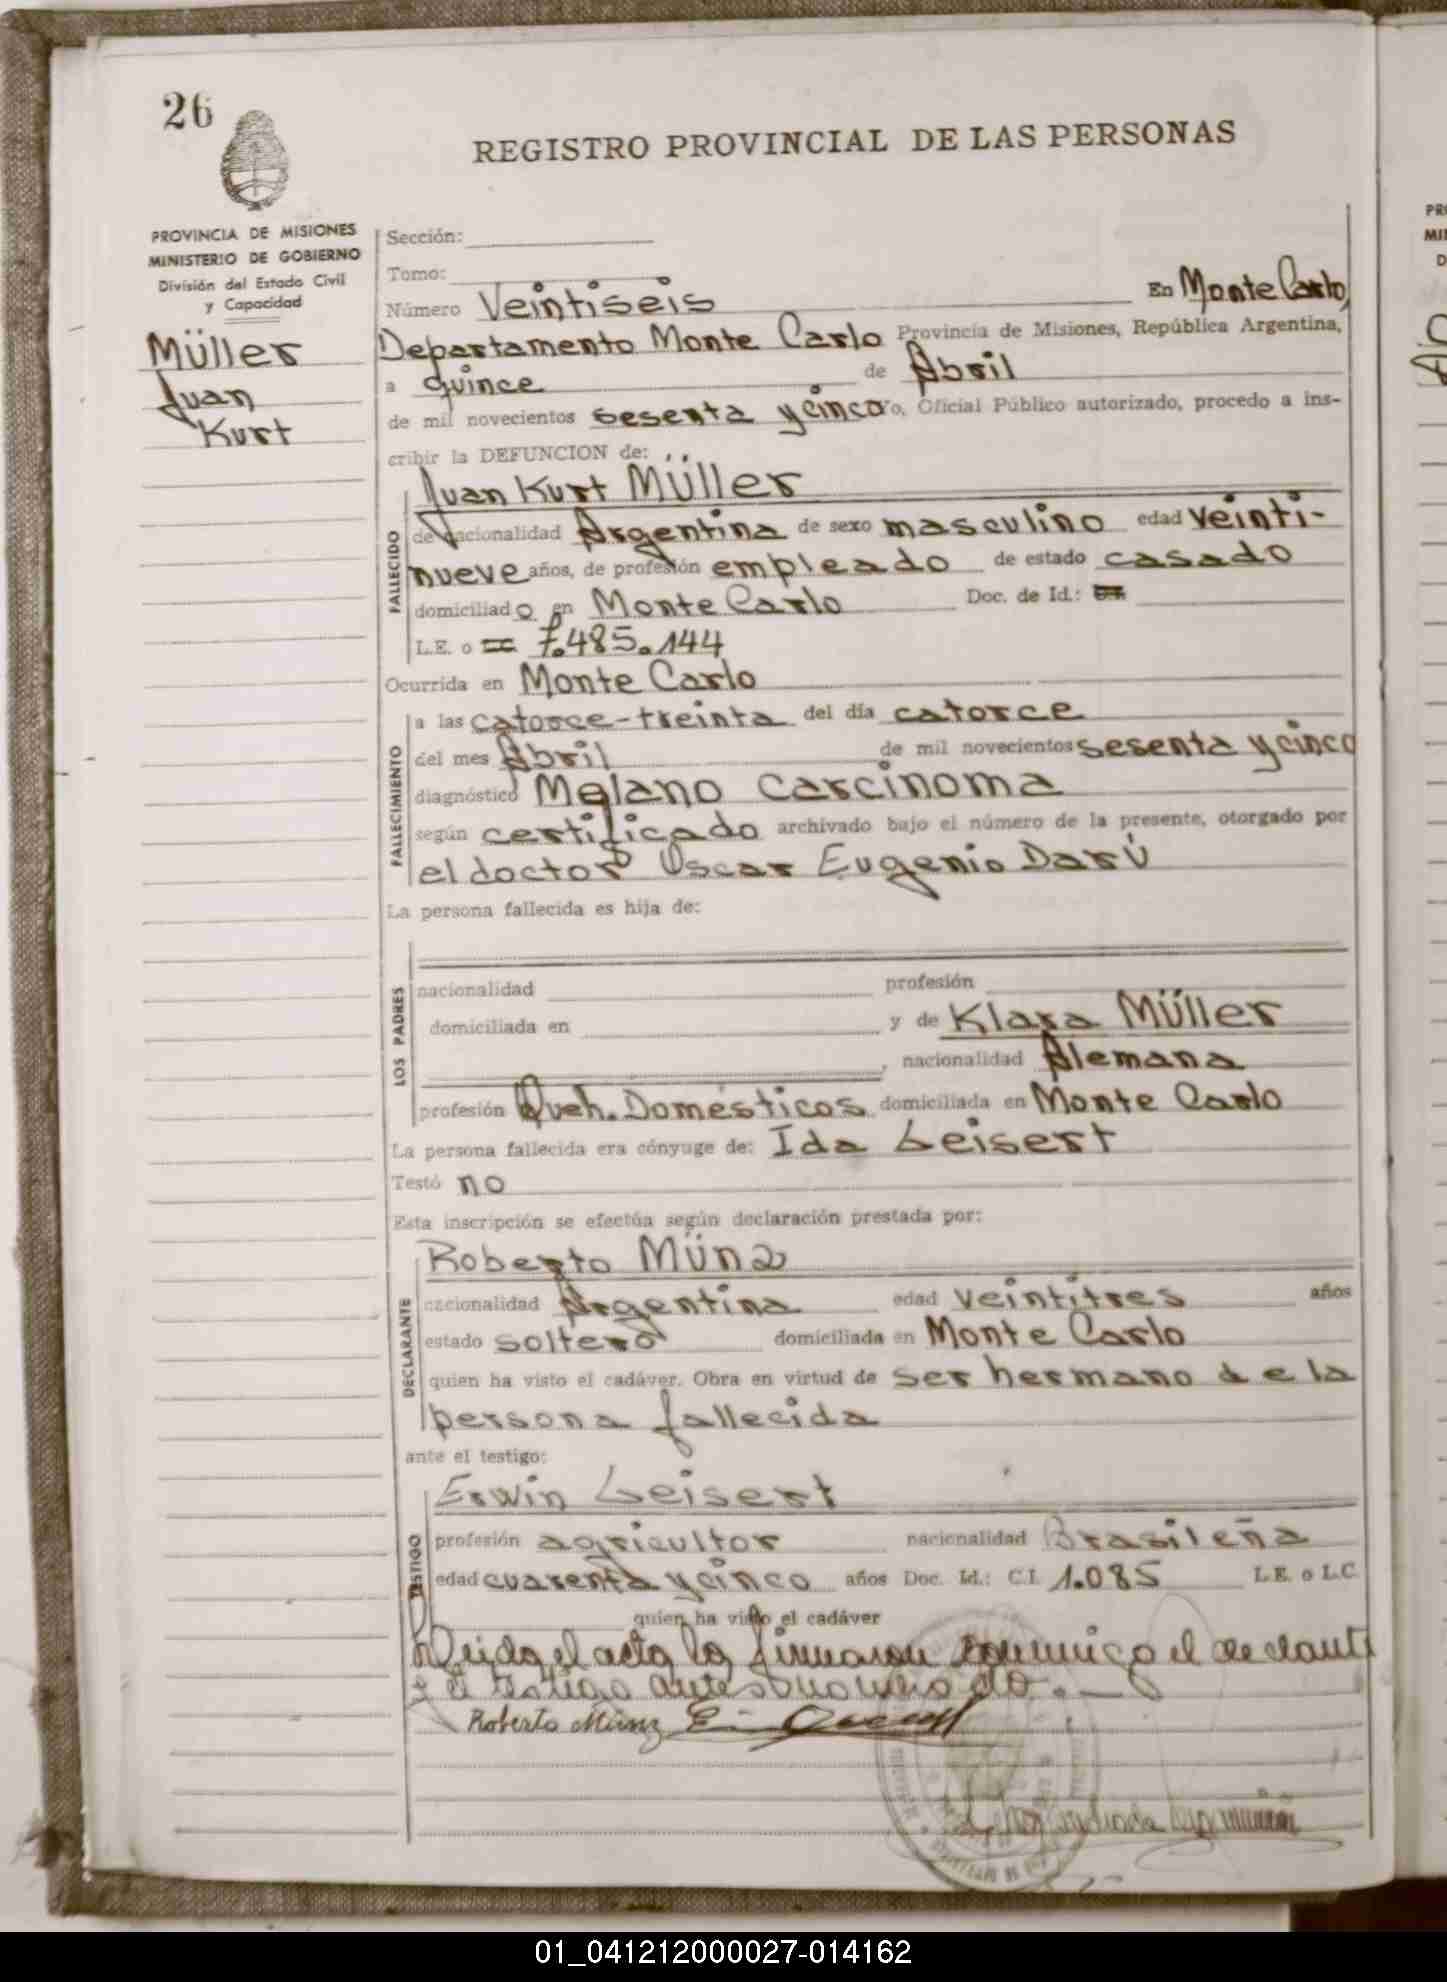 26
REGISTRO PROVINCIAL DE LAS PERSONAS
PROVINCIA DE MISIONES
MINISTERIO DE GOBIERNO
División del Estado Civil
y Capacidad
Müller
Juan
Kurt
Sección:
Tomo:
Número Veintiseis En Monte Carlo,
Departamento Monte Carlo Provincia de Misiones, República Argentina,
a quince de Abril
de mil novecientos sesenta y cinco yo, Oficial Público autorizado, procedo a ins-
cribir la DEFUNCION de:
Juan Kurt Müller
FALLECIDO
de nacionalidad Argentina de sexo masculino edad veinti-
nueve años, de profesión empleado de estado casado
domiciliado en Monte Carlo Doc. de Id.:
L.E. o 7.485.144
Ocurrida en Monte Carlo
FALLECIMIENTO
a las catorce-treinta del día catorce
del mes Abril de mil novecientos sesenta y cinco
diagnóstico Melano Carcinoma
según certificado archivado bajo el número de la presente, otorgado por
el doctor Oscar Eugenio Darú
La persona fallecida es hija de:
LOS PADRES
nacionalidad profesión
domiciliada en y de Klara Müller
, nacionalidad Alemana
profesión Queh. Domésticos domiciliada en Monte Carlo
La persona fallecida era cónyuge de: Ida Leisert
Testó no
Esta inscripción se efectúa según declaración prestada por:
Roberto Münz
DECLARANTE
nacionalidad Argentina edad veintitres años
estado soltero domiciliada en Monte Carlo
quien ha visto el cadáver. Obra en virtud de ser hermano de la
persona fallecida
ante el testigo:
Erwin Leisert
TESTIGO
profesión agricultor nacionalidad Brasileña
edad cuarenta y cinco años Doc. Id.: C.I. 1.085 L.E. o L.C.
quien ha visto el cadáver
Leida el acta la firmaron conmigo el declarante
y el testigo antes nombrado.—
Roberto Münz
01_041212000027-014162